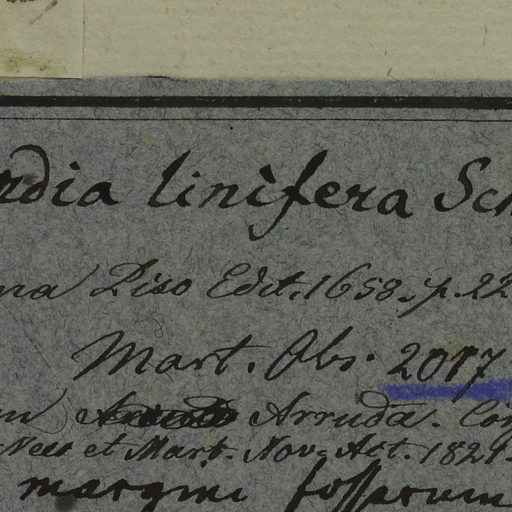 rdia linifera Sch
na Piso Edit. 1658. p. 22
Mart. Obs. 2017
Arruda. Con
Nees et Mart. Nov. Act. 1821.
margini fossarum